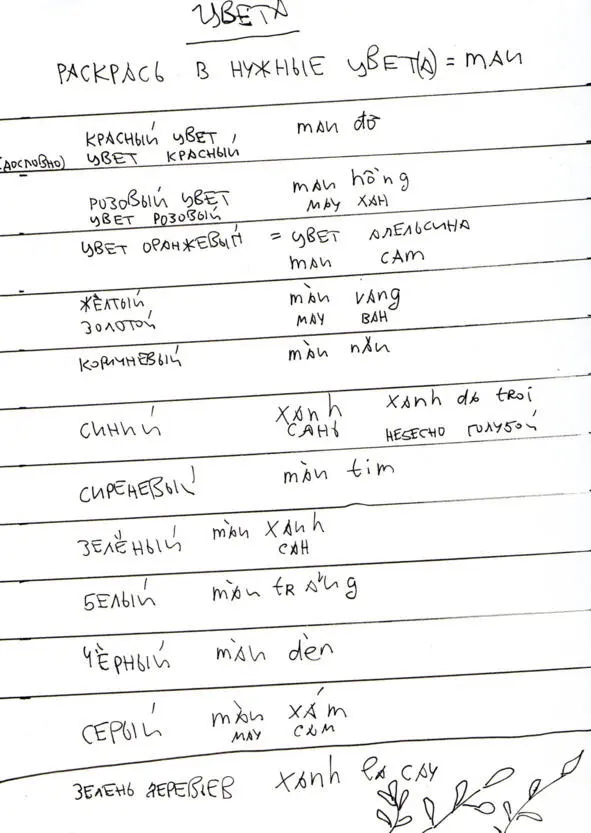 ЦВЕТА
РАСКРАСЬ В НУЖНЫЕ ЦВЕТ(А) = MÀU
КРАСНЫЙ ЦВЕТ, màu đỏ
(ДОСЛОВНО) ЦВЕТ КРАСНЫЙ
РОЗОВЫЙ ЦВЕТ màu hồng
ЦВЕТ РОЗОВЫЙ МАУ ХАН
ЦВЕТ ОРАНЖЕВЫЙ = ЦВЕТ АПЕЛЬСИНА
màu CAM
ЖЁЛТЫЙ màu vàng
ЗОЛОТОЙ МАУ ВАН
КОРИЧНЕВЫЙ màu nâu
СИНИЙ XANH XANH da trOi
САНЬ НЕБЕСНО ГОЛУБОЙ
СИРЕНЕВЫЙ màu tim
ЗЕЛЁНЫЙ màu XANH
САН
БЕЛЫЙ màu tRắng
ЧЁРНЫЙ màu dèn
СЕРЫЙ màu XÁm
МАУ САМ
ЗЕЛЕНЬ ДЕРЕВЬЕВ XANH La CAY